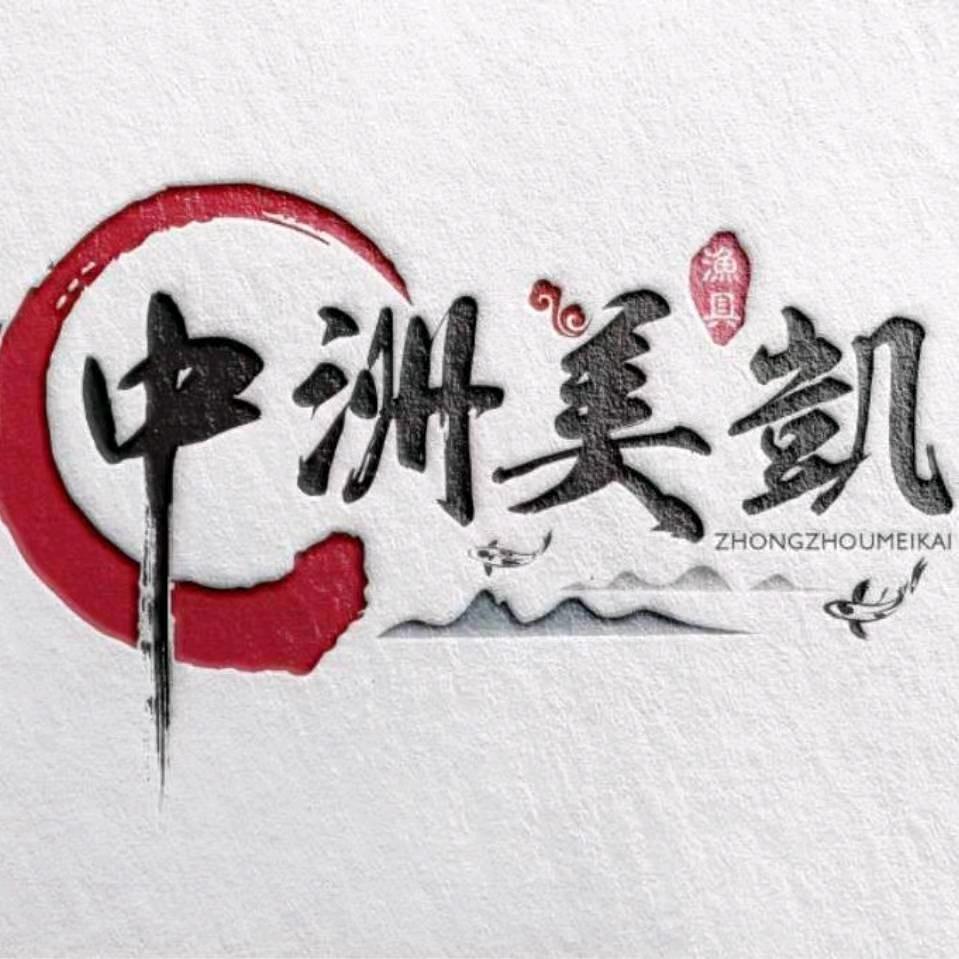 中洲美凱
漁具
ZHONGZHOUMEIKAI